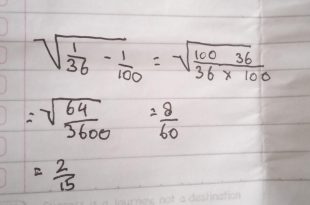 √(1/36 - 1/100) = √((100 36)/(36 × 100))
= √(64/3600) = 8/60
= 2/15
not a destination